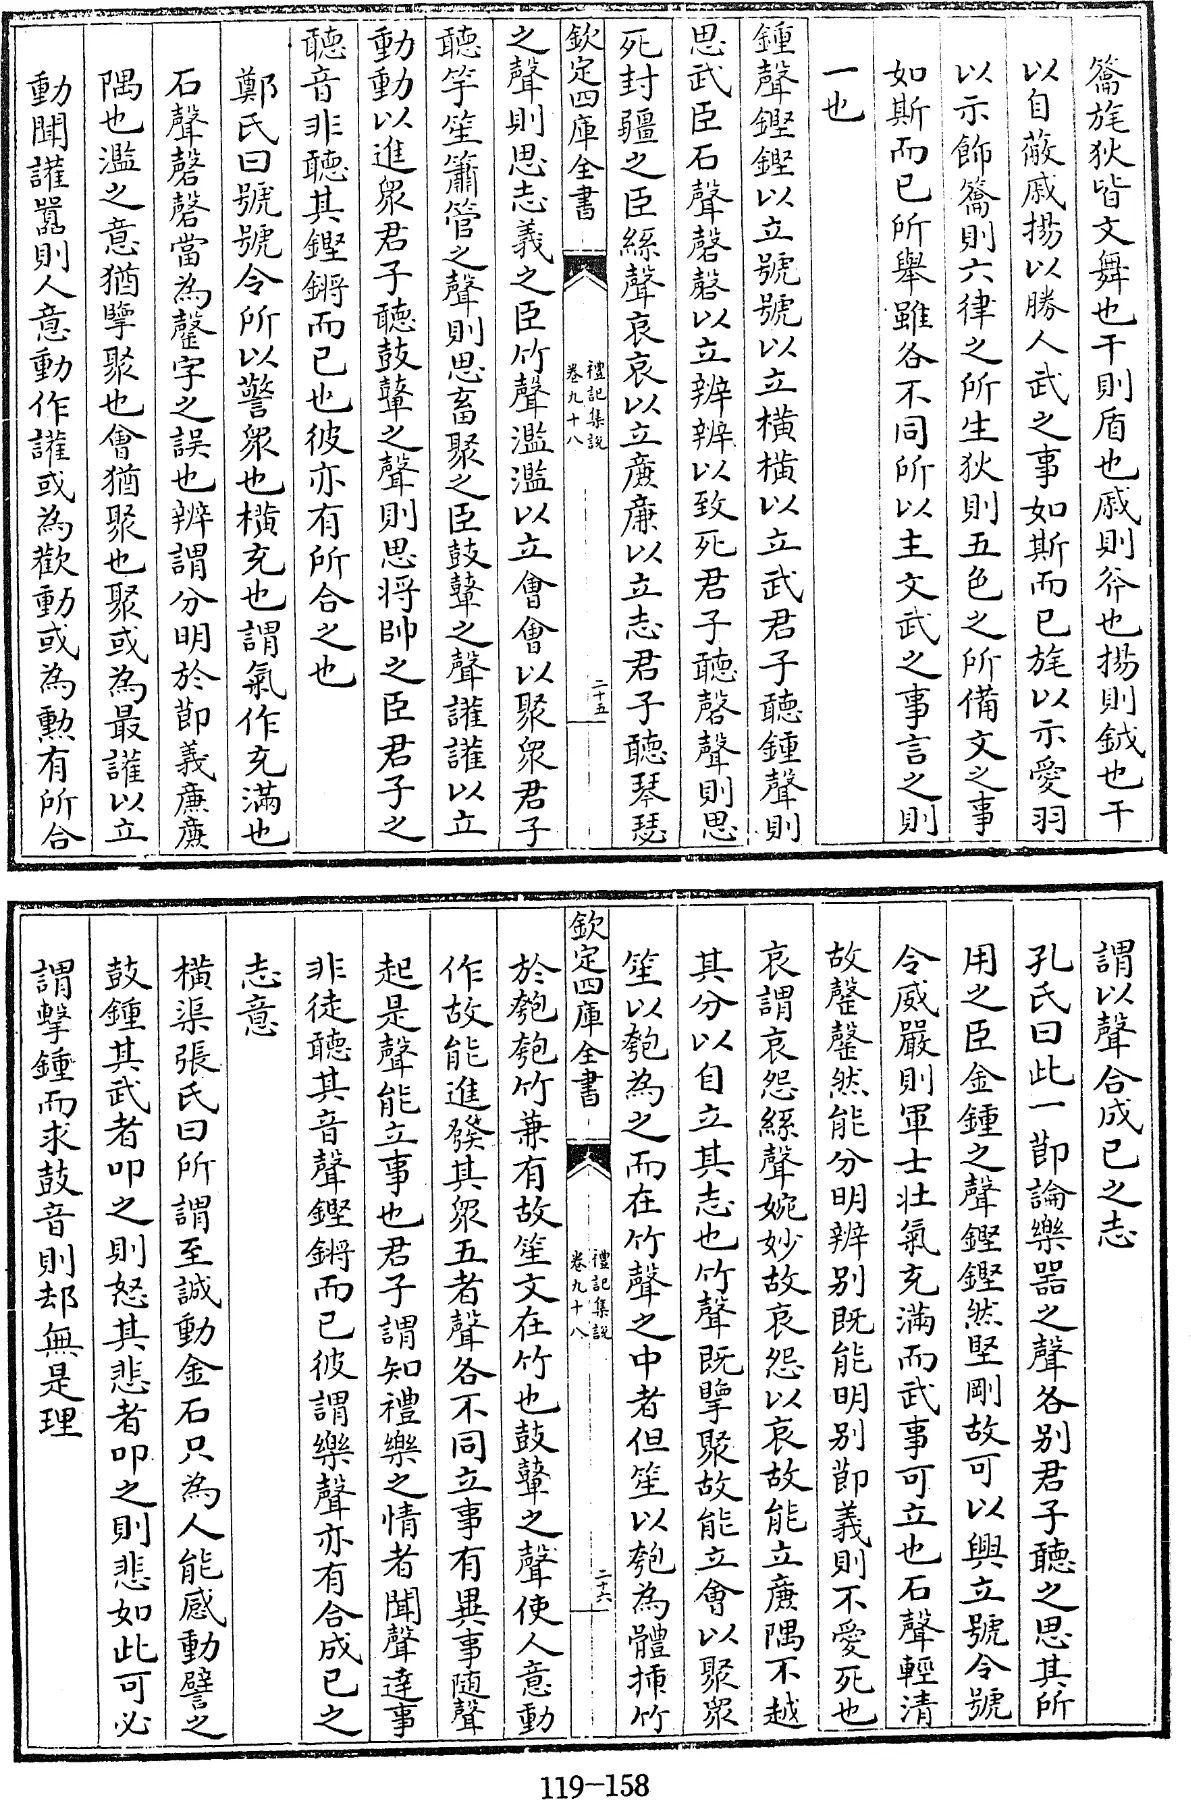 籥旄狄皆文舞也干則盾也戚則斧也揚則鉞也干
以自蔽戚揚以勝人武之事如斯而已旄以示愛羽
以示飾籥則六律之所生狄則五色之所備文之事
如斯而已所舉雖各不同所以主文武之事言之則
一也
鍾聲鏗鏗以立號號以立橫橫以立武君子聽鍾聲則
思武臣石聲磬磬以立辨辨以致死君子聽磬聲則思
死封疆之臣絲聲哀哀以立廉廉以立志君子聽琴瑟
欽定四庫全書
禮記集說
卷九十八
二十五
之聲則思志義之臣竹聲濫濫以立會會以聚衆君子
聽竽笙簫管之聲則思畜聚之臣鼓鼙之聲讙讙以立
動動以進衆君子聽鼓鼙之聲則思將帥之臣君子之
聽音非聽其鏗鏘而已也彼亦有所合之也
鄭氏曰號號令所以警衆也橫充也謂氣作充滿也
石聲磬磬當為罄字之誤也辨謂分明於節義廉廉
隅也濫之意猶擥聚也會猶聚也聚或為最讙以立
動聞讙囂則人意動作讙或為歡動或為勲有所合
謂以聲合成已之志
孔氏曰此一節論樂器之聲各别君子聽之思其所
用之臣金鍾之聲鏗鏗然堅剛故可以興立號令號
令威嚴則軍士壯氣充滿而武事可立也石聲輕清
故罄罄然能分明辨别既能明别節義則不愛死也
哀謂哀怨絲聲婉妙故哀怨以哀故能立廉隅不越
其分以自立其志也竹聲既擥聚故能立會以聚衆
笙以匏為之而在竹聲之中者但笙以匏為體揷竹
欽定四庫全書
禮記集說
卷九十八
二十六
於匏匏竹兼有故笙文在竹也鼓鼙之聲使人意動
作故能進發其衆五者聲各不同立事有異事隨聲
起是聲能立事也君子謂知禮樂之情者聞聲達事
非徒聽其音聲鏗鏘而已彼謂樂聲亦有合成已之
志意
橫渠張氏曰所謂至誠動金石只為人能感動譬之
鼓鍾其武者叩之則怒其悲者叩之則悲如此可必
謂擊鍾而求鼓音則却無是理
119-158